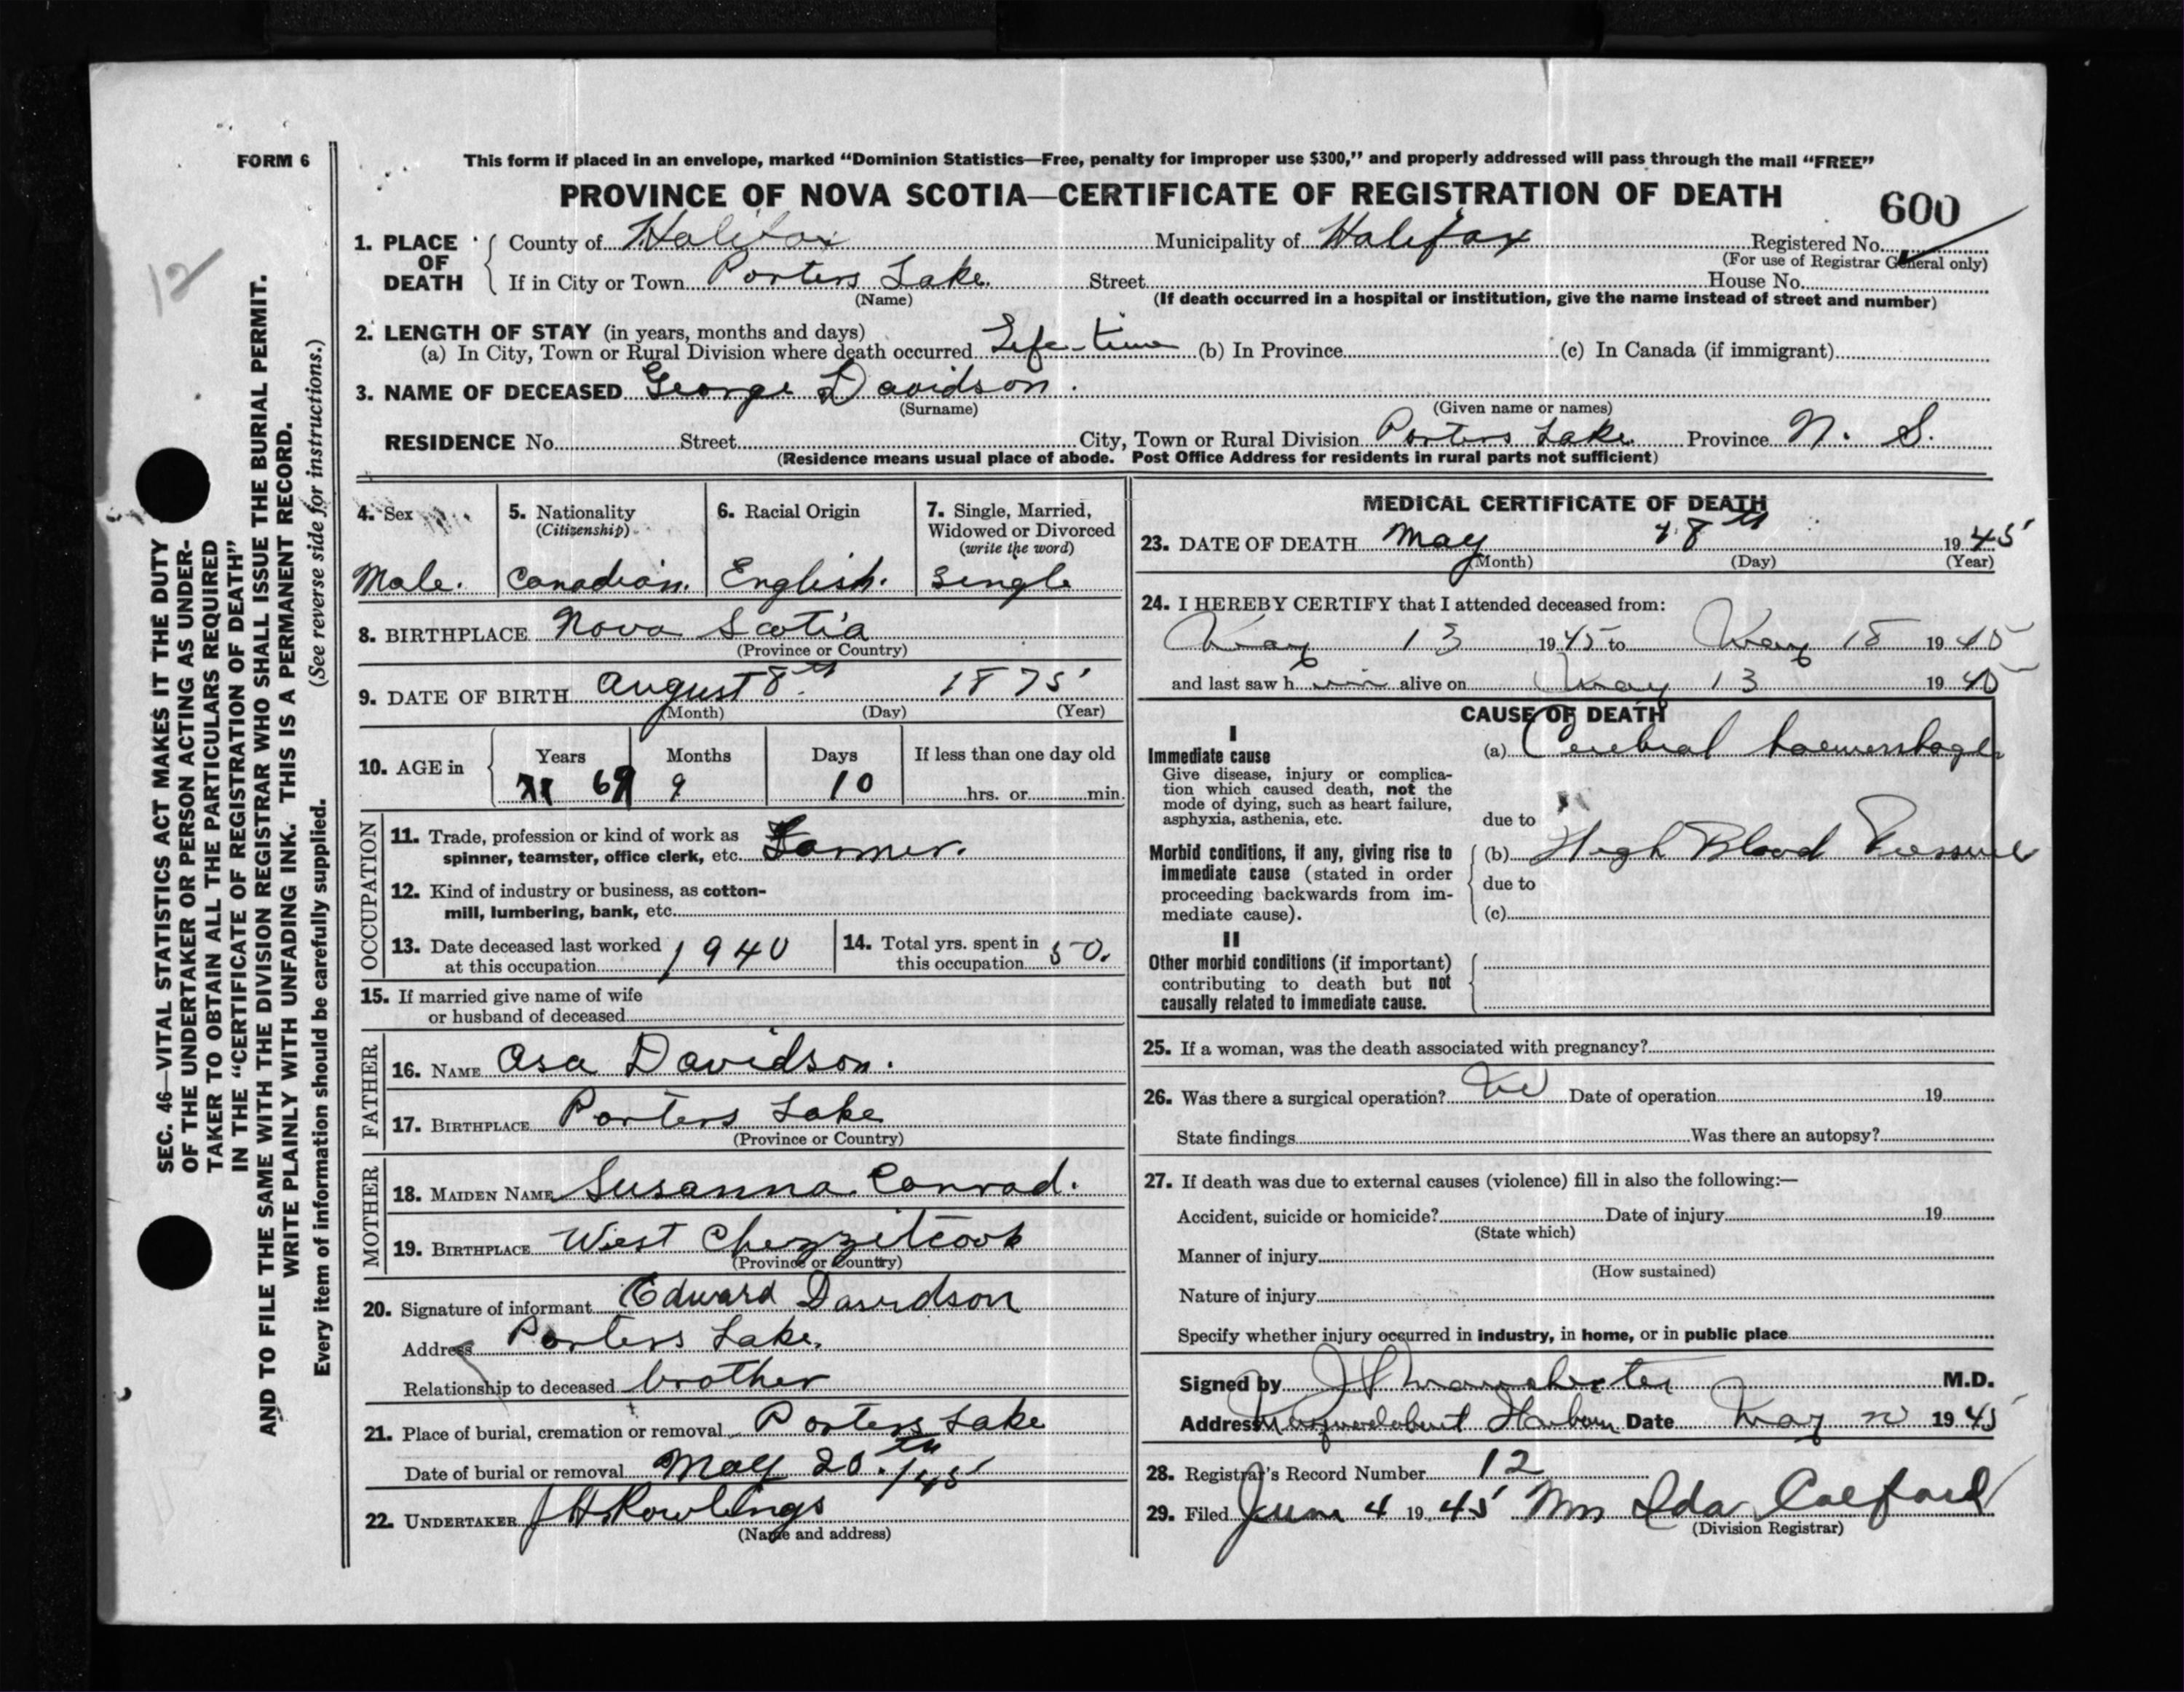 FORM 6
This form if placed in an envelope, marked “Dominion Statistics—Free, penalty for improper use $300,” and properly addressed will pass through the mail “FREE”
PROVINCE OF NOVA SCOTIA—CERTIFICATE OF REGISTRATION OF DEATH
600
12
SEC. 46—VITAL STATISTICS ACT MAKES IT THE DUTY
OF THE UNDERTAKER OR PERSON ACTING AS UNDER-
TAKER TO OBTAIN ALL THE PARTICULARS REQUIRED
IN THE “CERTIFICATE OF REGISTRATION OF DEATH”
AND TO FILE THE SAME WITH THE DIVISION REGISTRAR WHO SHALL ISSUE THE BURIAL PERMIT.
WRITE PLAINLY WITH UNFADING INK. THIS IS A PERMANENT RECORD.
Every item of information should be carefully supplied. (See reverse side for instructions.)
1. PLACE OF DEATH
County of Halifax Municipality of Halifax Registered No.
(For use of Registrar General only)
If in City or Town Porters Lake. Street House No.
(Name) (If death occurred in a hospital or institution, give the name instead of street and number)
2. LENGTH OF STAY (in years, months and days)
(a) In City, Town or Rural Division where death occurred Life-time (b) In Province (c) In Canada (if immigrant)
3. NAME OF DECEASED George Davidson.
(Surname) (Given name or names)
RESIDENCE No. Street City, Town or Rural Division Porters Lake Province N. S.
(Residence means usual place of abode. Post Office Address for residents in rural parts not sufficient)
4. Sex 5. Nationality 6. Racial Origin 7. Single, Married,
(Citizenship) Widowed or Divorced
(write the word)
Male. Canadian. English. Single
8. BIRTHPLACE Nova Scotia
(Province or Country)
9. DATE OF BIRTH August 8th 1875
(Month) (Day) (Year)
10. AGE in Years Months Days If less than one day old
69 9 10 hrs. or min.
OCCUPATION
11. Trade, profession or kind of work as
spinner, teamster, office clerk, etc. Farmer.
12. Kind of industry or business, as cotton-
mill, lumbering, bank, etc.
13. Date deceased last worked 14. Total yrs. spent in
at this occupation 1940 this occupation 50.
15. If married give name of wife
or husband of deceased
FATHER
16. NAME Asa Davidson.
17. BIRTHPLACE Porters Lake
(Province or Country)
MOTHER
18. MAIDEN NAME Susanna Conrad.
19. BIRTHPLACE West Chezzetcook
(Province or Country)
20. Signature of informant Edward Davidson
Address Porters Lake.
Relationship to deceased brother
21. Place of burial, cremation or removal Porters Lake
Date of burial or removal May 20th /45
22. UNDERTAKER J H Rowlings
(Name and address)
MEDICAL CERTIFICATE OF DEATH
23. DATE OF DEATH May 18th 1945
(Month) (Day) (Year)
24. I HEREBY CERTIFY that I attended deceased from:
May 13 1945 to May 18 1945
and last saw him alive on May 13 1945
CAUSE OF DEATH
I
Immediate cause (a) Cerebral haemorrhage
Give disease, injury or complica-
tion which caused death, not the
mode of dying, such as heart failure,
asphyxia, asthenia, etc. due to
Morbid conditions, if any, giving rise to (b) High Blood Pressure
immediate cause (stated in order due to
proceeding backwards from im-
mediate cause). (c)
II
Other morbid conditions (if important)
contributing to death but not
causally related to immediate cause.
25. If a woman, was the death associated with pregnancy?
26. Was there a surgical operation? No Date of operation 19
State findings Was there an autopsy?
27. If death was due to external causes (violence) fill in also the following:—
Accident, suicide or homicide? Date of injury 19
(State which)
Manner of injury
(How sustained)
Nature of injury
Specify whether injury occurred in industry, in home, or in public place
Signed by M.D.
Address Musquodoboit Harbour Date May 1945
28. Registrar's Record Number 12
29. Filed June 4 1945 Mrs Ida
(Division Registrar)